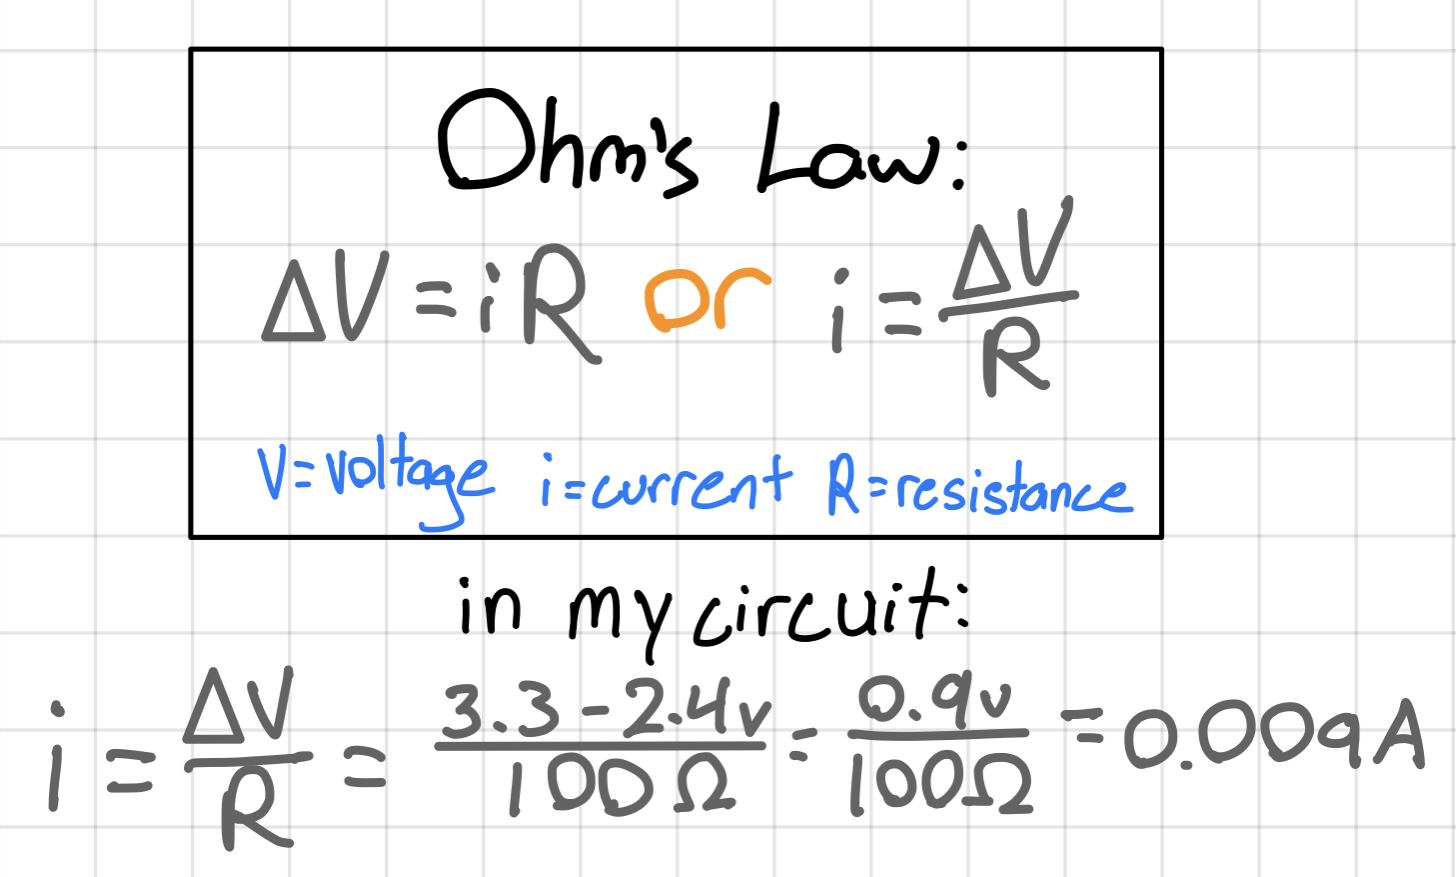 Ohm's Law:
ΔV = iR or i = ΔV/R
V=voltage i=current R=resistance
in my circuit:
i = ΔV/R = 3.3-2.4v/100Ω = 0.9v/100Ω = 0.009A